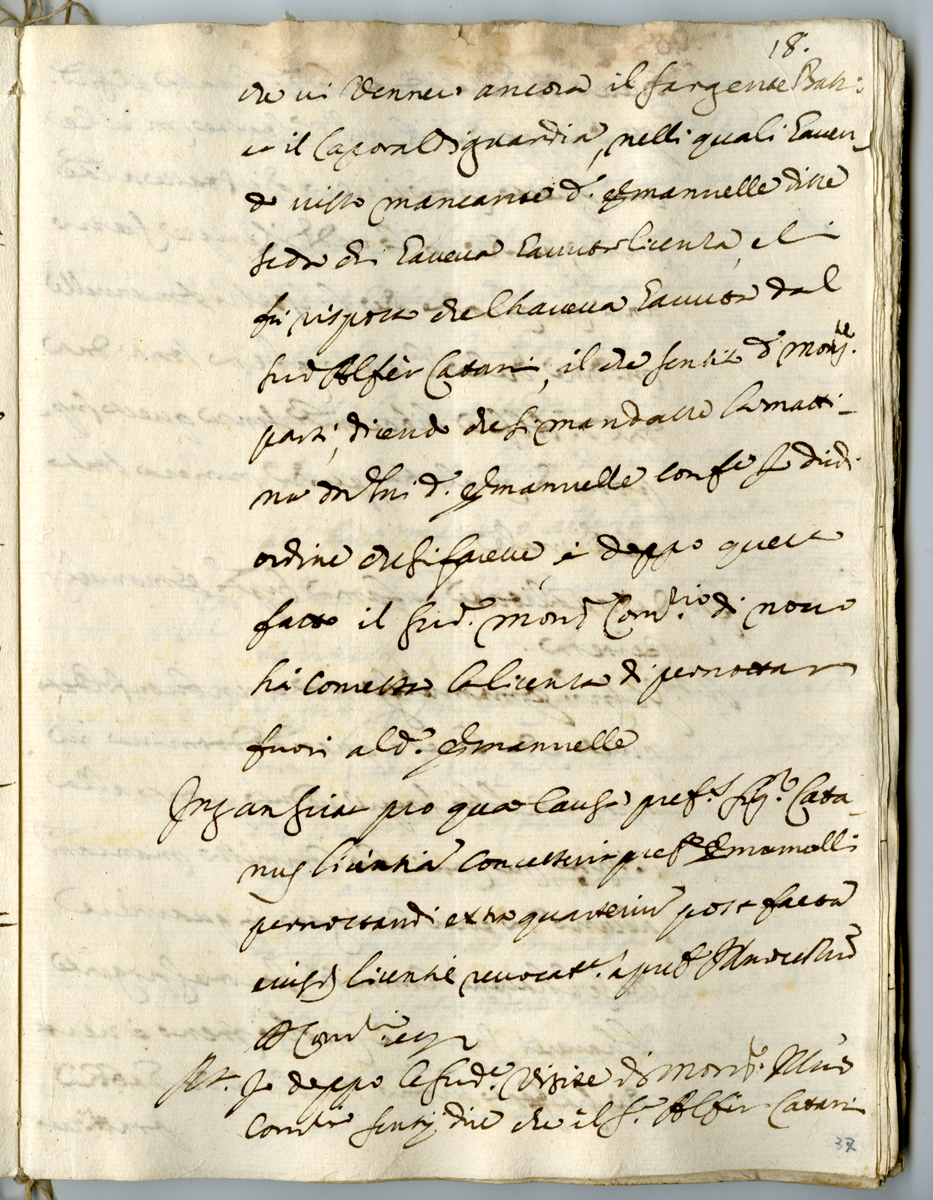 18.
che vi venne ancora il sargente Batt:
e il Caporal di guardia, nelli quali haven-
do visto mancante d.º Emanuelle disse
se da chi haveva havuto licenza, e li
fu risposto che l'haveva havuta dal
sud.º Alfier Cattani, il che sentito d.º Mons.
parti, dicendo che si mandasse la matti-
na da lui d.º Emanuelle
ordine che si faceva, e doppo questo
fatto il sud.º Mons.r Com.rio di novo
hà comessa la licenza di pernottar
fuori al d.º Emanuelle
pro qua causa pref.s Sig.r Catta-
nus licentiam concesserit pref.o Emanuelli
pernoctandi extra quarterium post factam
eiusd. licentie revocat. a pref.
Com.
R.t Io doppo le sud.e visite di Mons.r Ill.mo
Com.rio sentij dire che il S.r Alfier Cattani
37